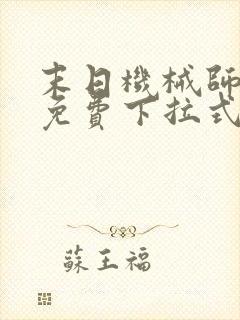 末日機械師
免費下拉式
蘇王福